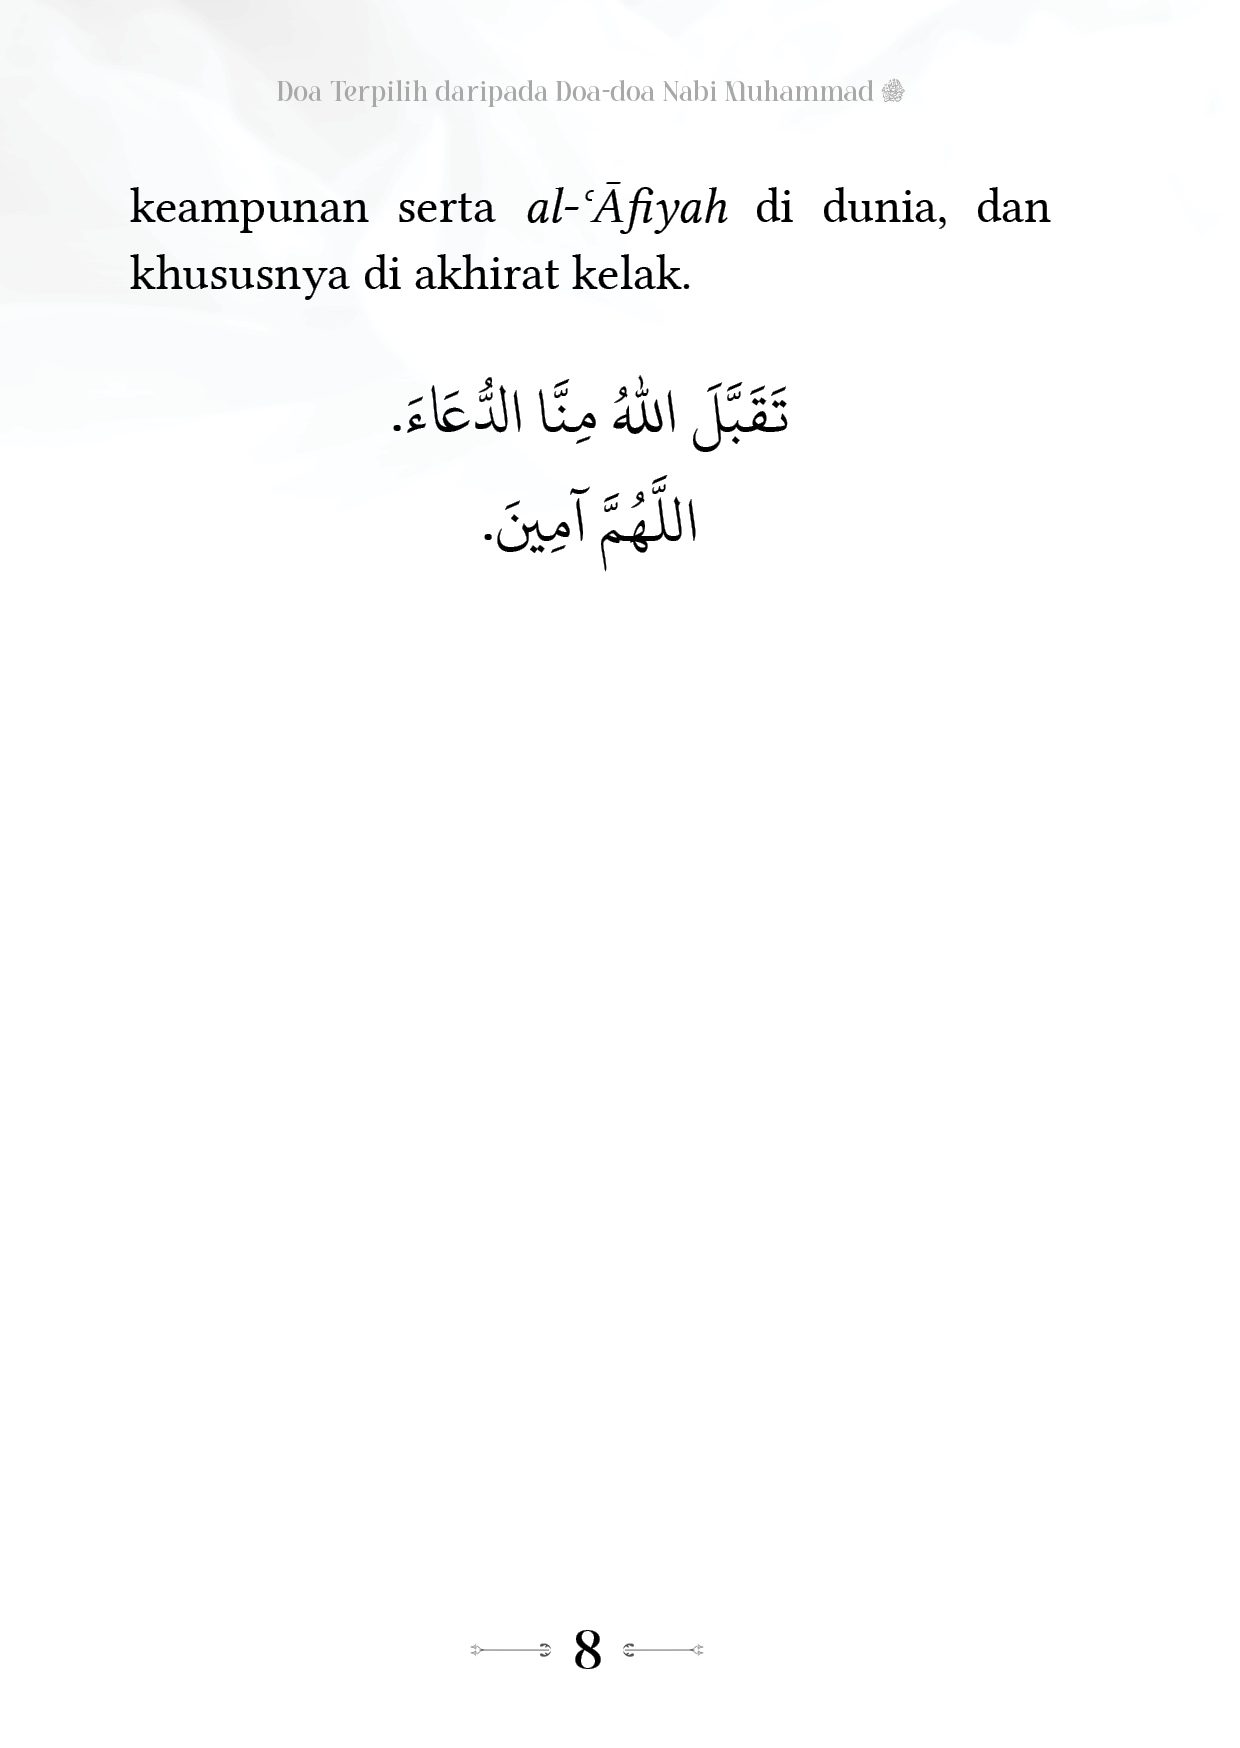 Doa Terpilih daripada Doa-doa Nabi Muhammad ﷺ
keampunan serta al-ʿĀfiyah di dunia, dan
khususnya di akhirat kelak.
تَقَبَّلَ اللهُ مِنَّا الدُّعَاءَ.
اللَّهُمَّ آمِينَ.
8